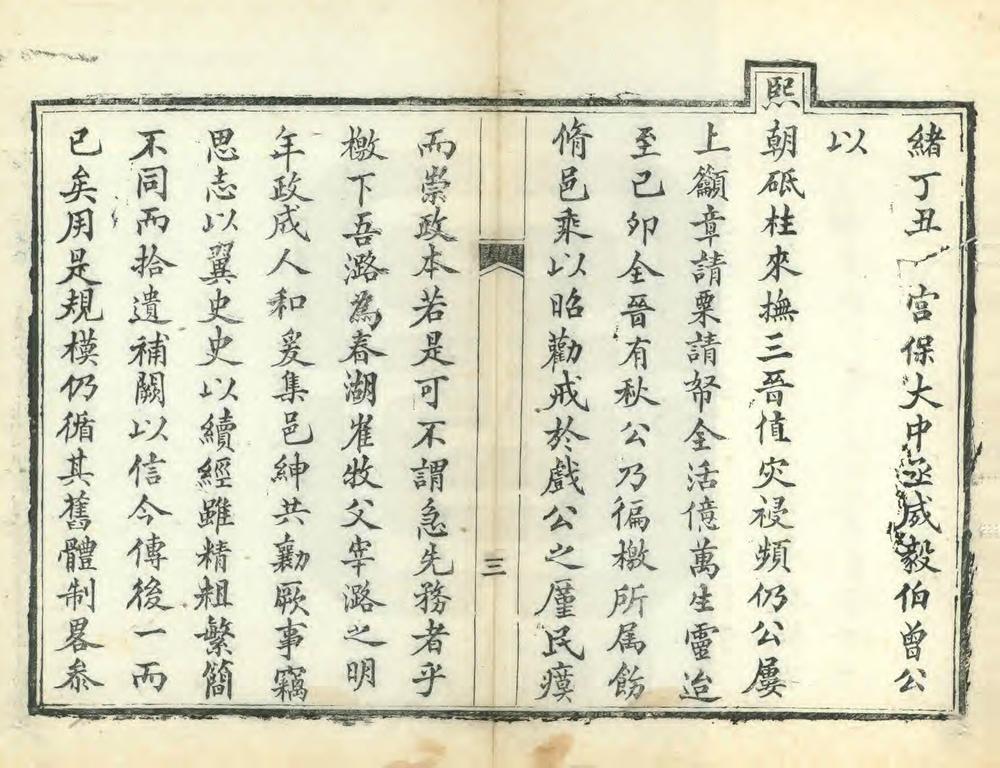 緒丁丑 宮保大中丞威毅伯曾公
以
熙朝砥柱來撫三晉值灾祲頻仍公屢
上籲章請粟請帑全活億萬生靈迨
至己卯全晉有秋公乃徧檄所属飭
脩邑乘以昭勸戒於戲公之廑民瘼
三
而崇政本若是可不謂急先務者乎
檄下吾潞為春湖崔牧父宰潞之明
年政成人和爰集邑紳共勷厥事竊
思志以翼史史以續經雖精粗繁簡
不同而拾遺補闕以信今傳後一而
已矣用是規模仍循其舊體制畧叅